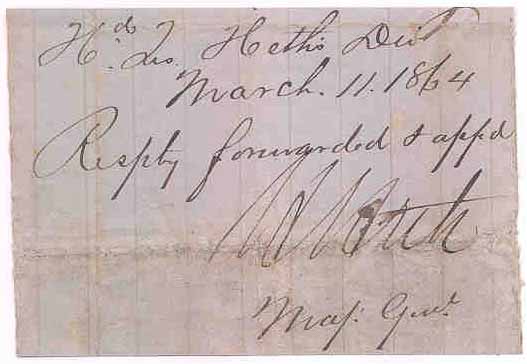 Hd. Qrs. Heth's Div
March. 11. 1864
Respty forwarded & appd
H Heth
Maj. Genl.